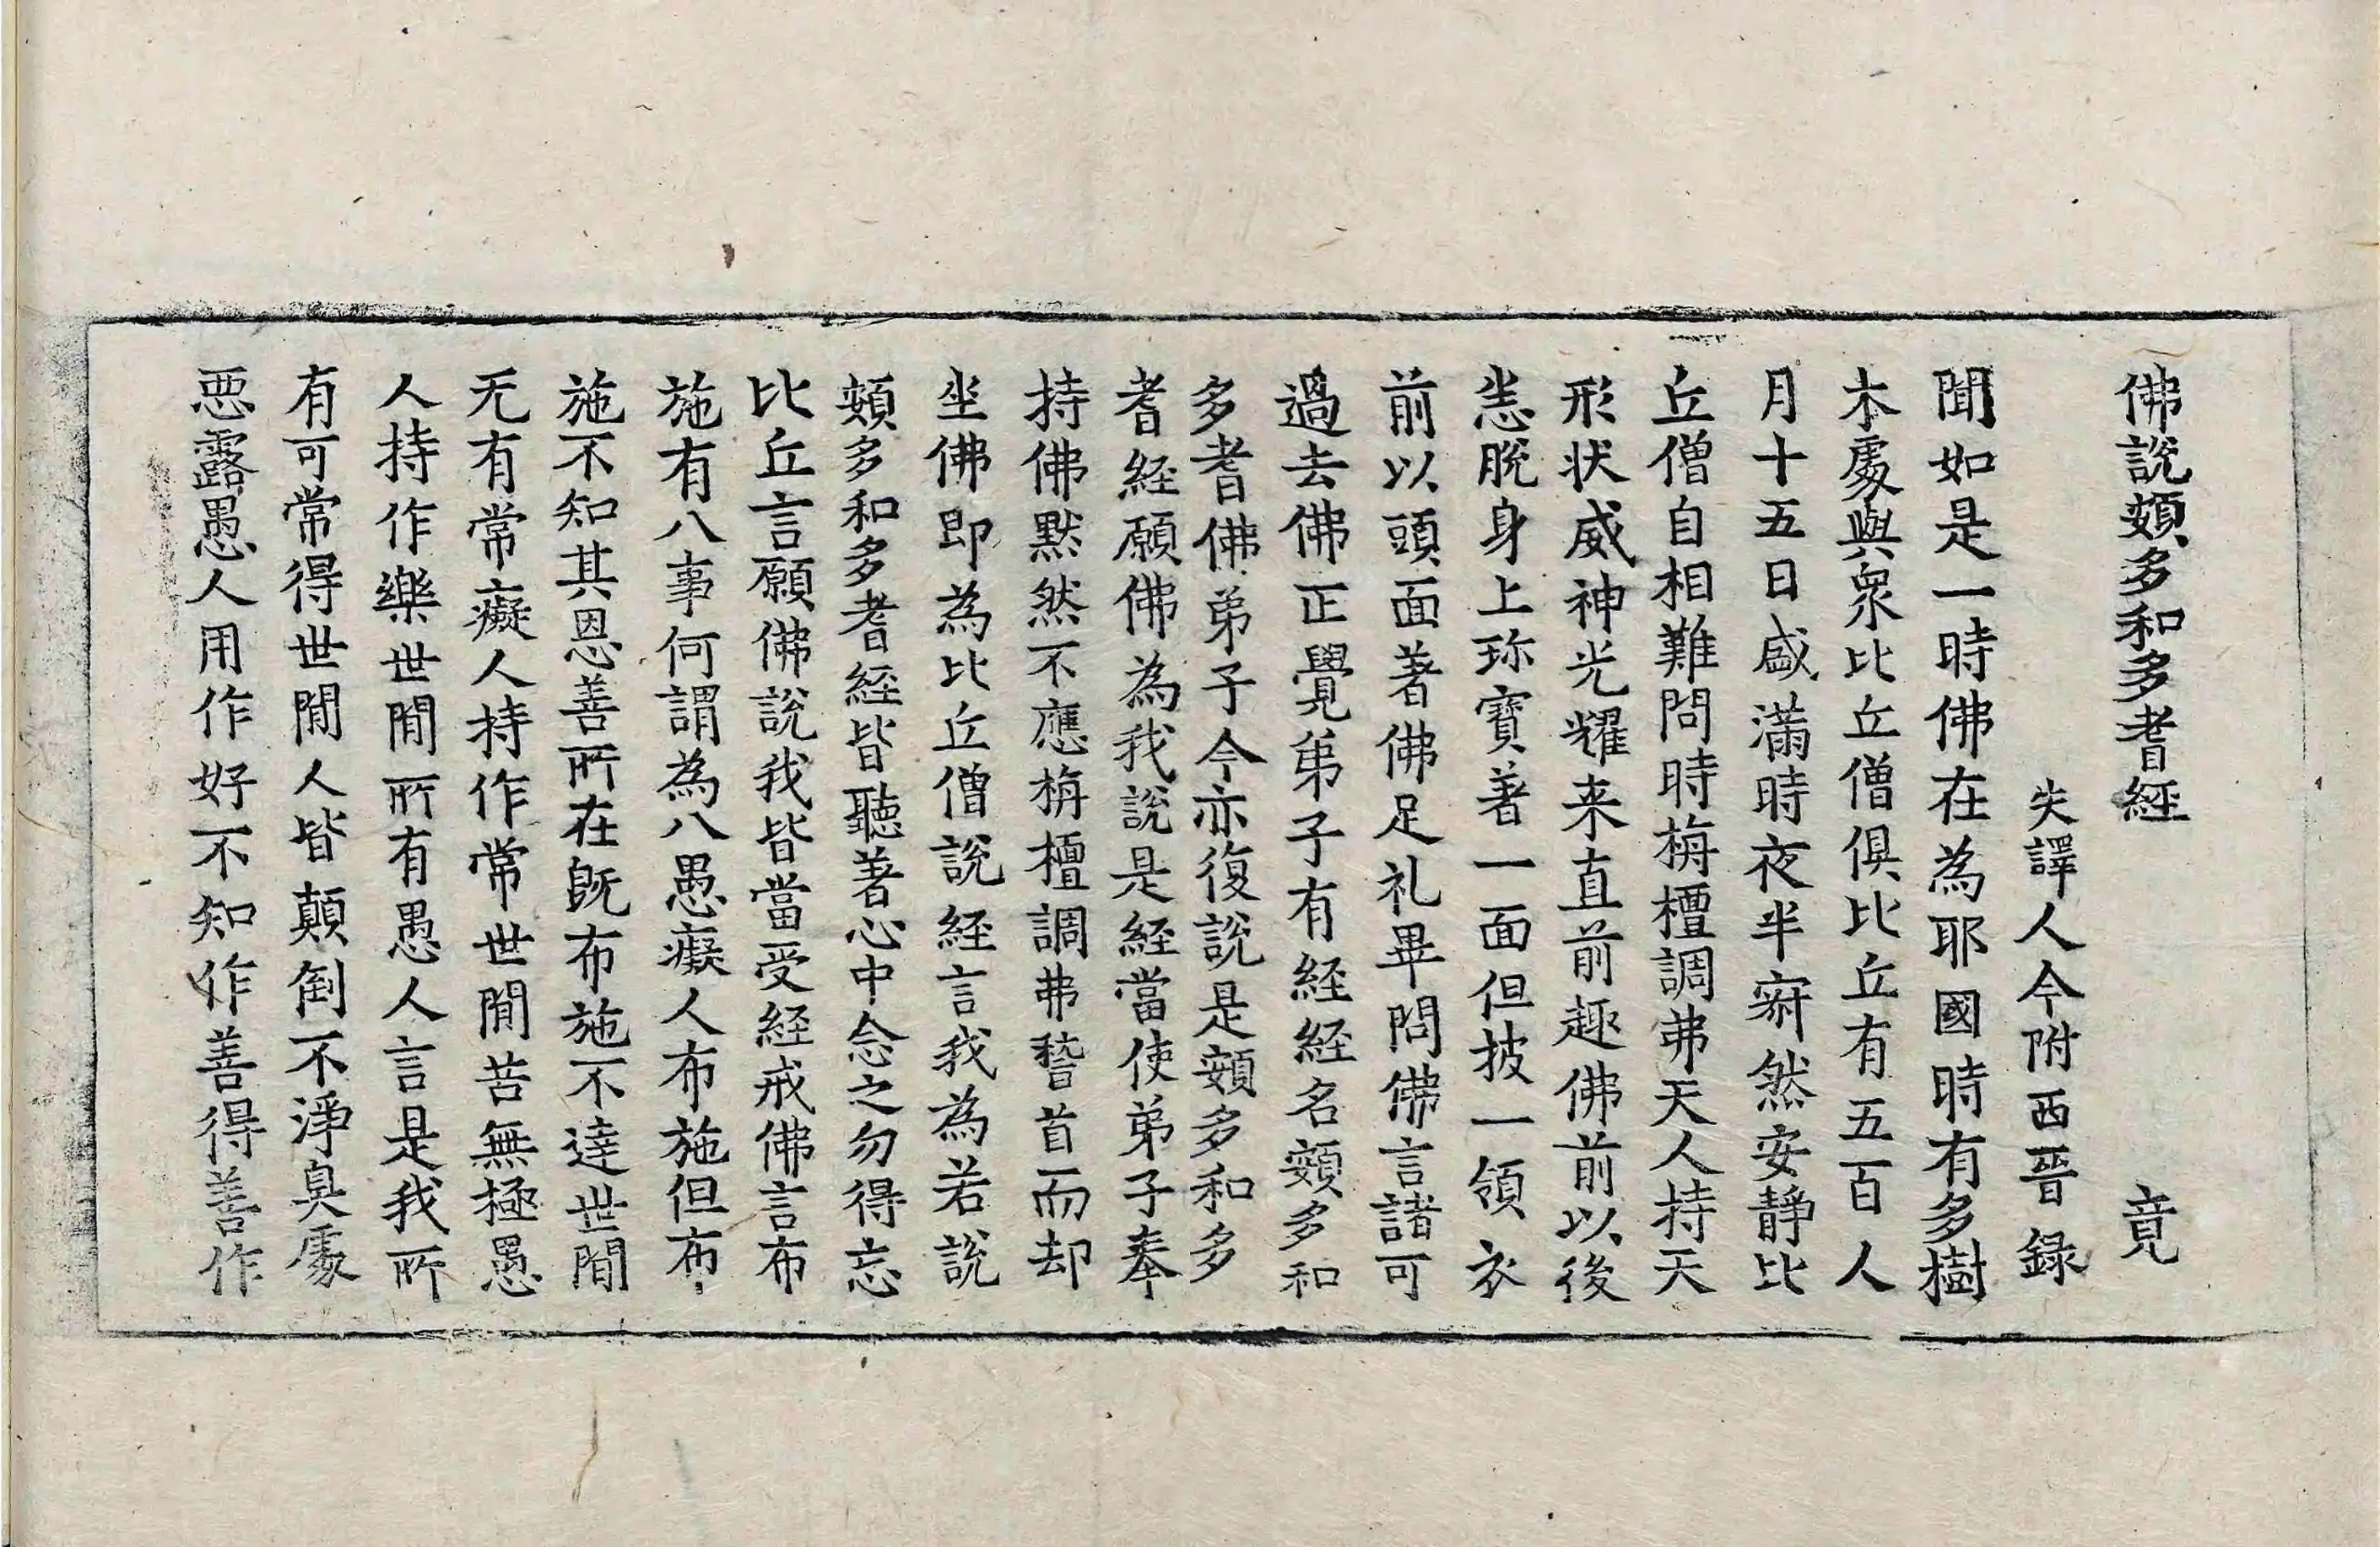 佛說頞多和多耆經 竟
失譯人今附西晉錄
聞如是一時佛在為耶國時有多樹
木處與衆比丘僧俱比丘有五百人
月十五日盛滿時夜半寂然安靜比
丘僧自相難問時栴檀調弗天人持天
形状威神光耀来直前趣佛前以後
悉脫身上珎寶著一面但披一領衣
前以頭面著佛足礼畢問佛言諸可
過去佛正覺弟子有経経名頞多和
多耆佛弟子今亦復說是頞多和多
耆経願佛為我說是経當使弟子奉
持佛默然不應栴檀調弗稽首而却
坐佛即為比丘僧說経言我為若說
頞多和多耆経皆聽著心中念之勿得忘
比丘言願佛說我皆當受経戒佛言布
施有八事何謂為八愚癡人布施但布
施不知其恩善所在旣布施不達世間
无有常癡人持作常世間苦無極愚
人持作樂世間所有愚人言是我所
有可常得世間人皆顛倒不淨臭處
惡露愚人用作好不知作善得善作